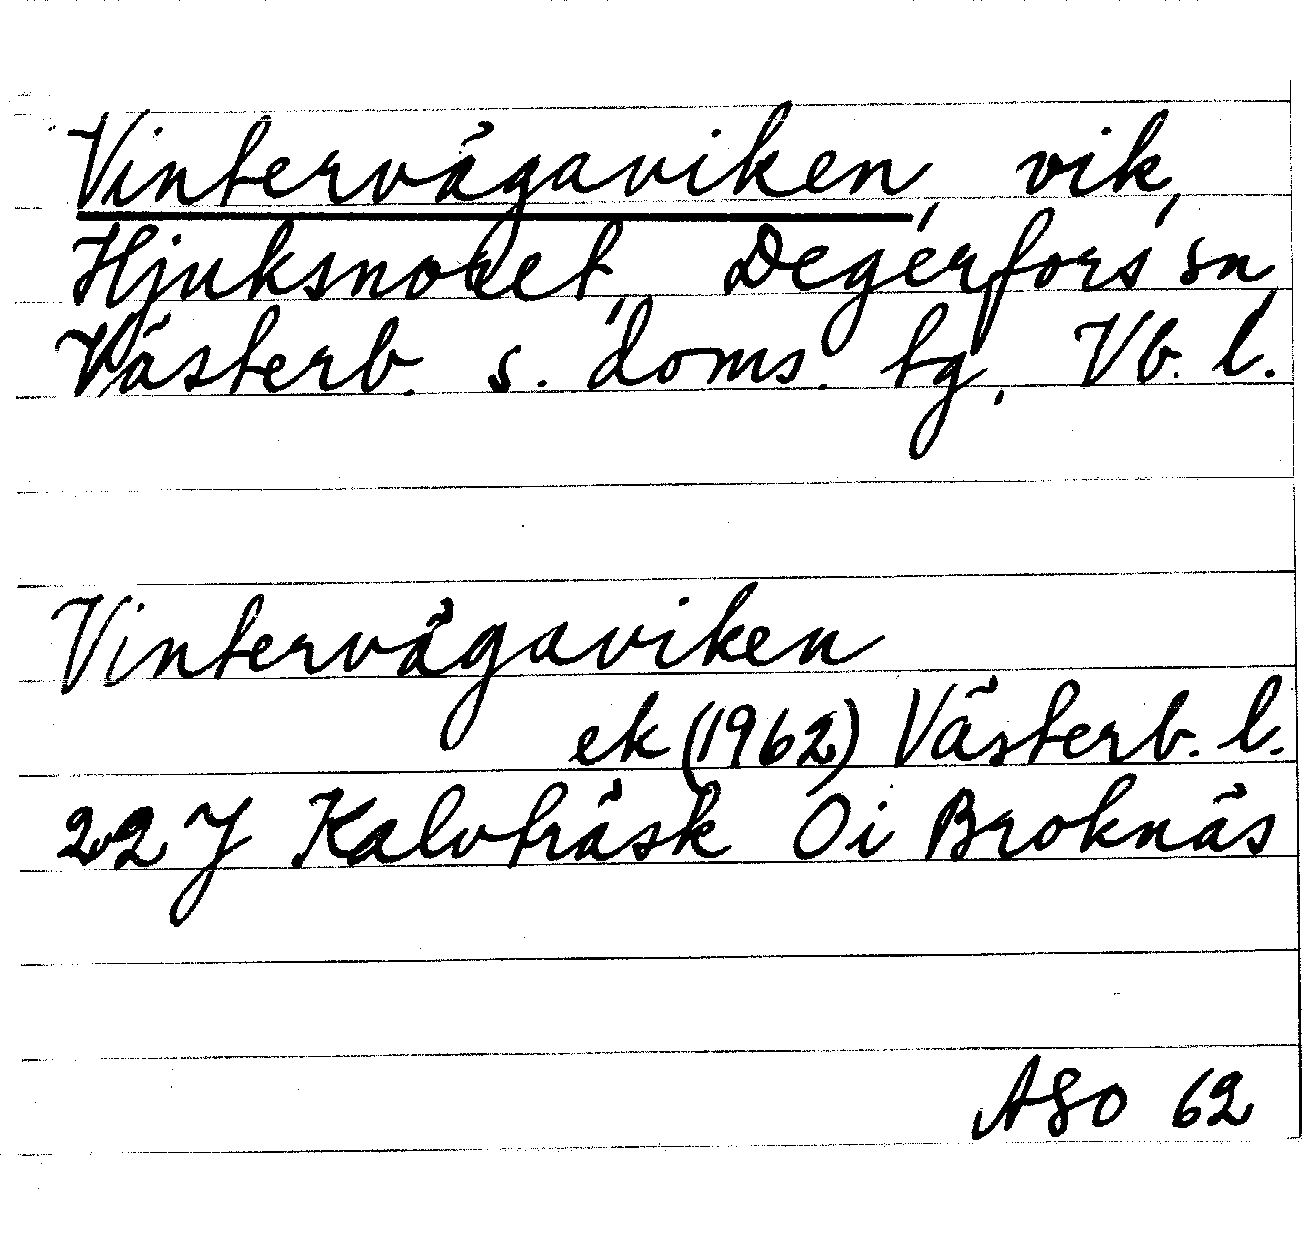 Vintervägaviken, vik,
Hjuksnoret, Degerfors sn,
Västerb. s. doms. tg, Vb. l.
Vintervägaviken
ek (1962) Västerb. l.
22 J Kalvträsk 0i Broknäs
ASO 62